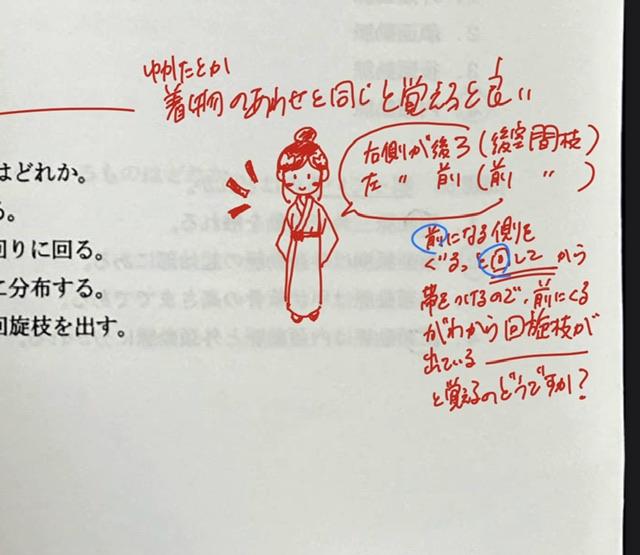 ゆかたとか
着物のあわせと同じと覚えると良い
右側が後ろ(後室間枝)
左〃前(前〃)
前になる側を
ぐる。と回してから
帯をつけるので、前にくる
がわから回旋枝が
出ている
と覚えるのどうですか?
はどれか。
る。
回りに回る。
に分布する。
回旋枝を出す。